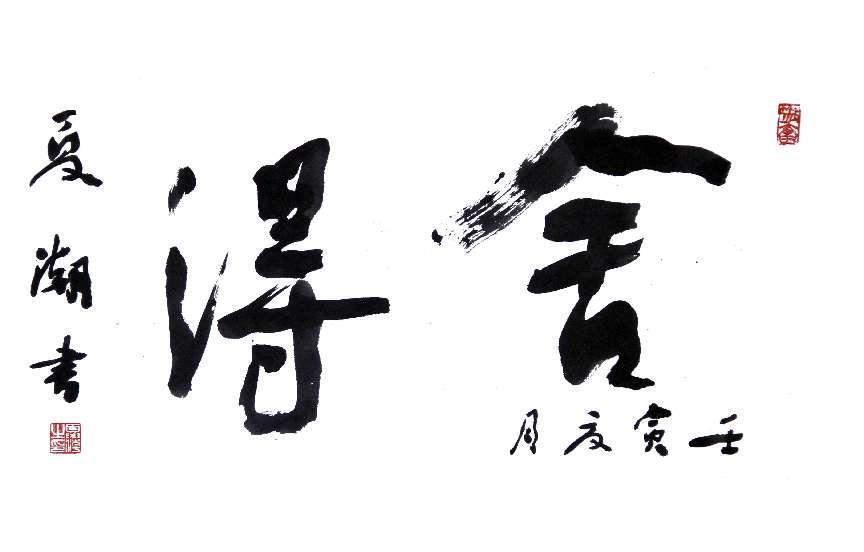 舍得
壬寅夏月
夏潮书